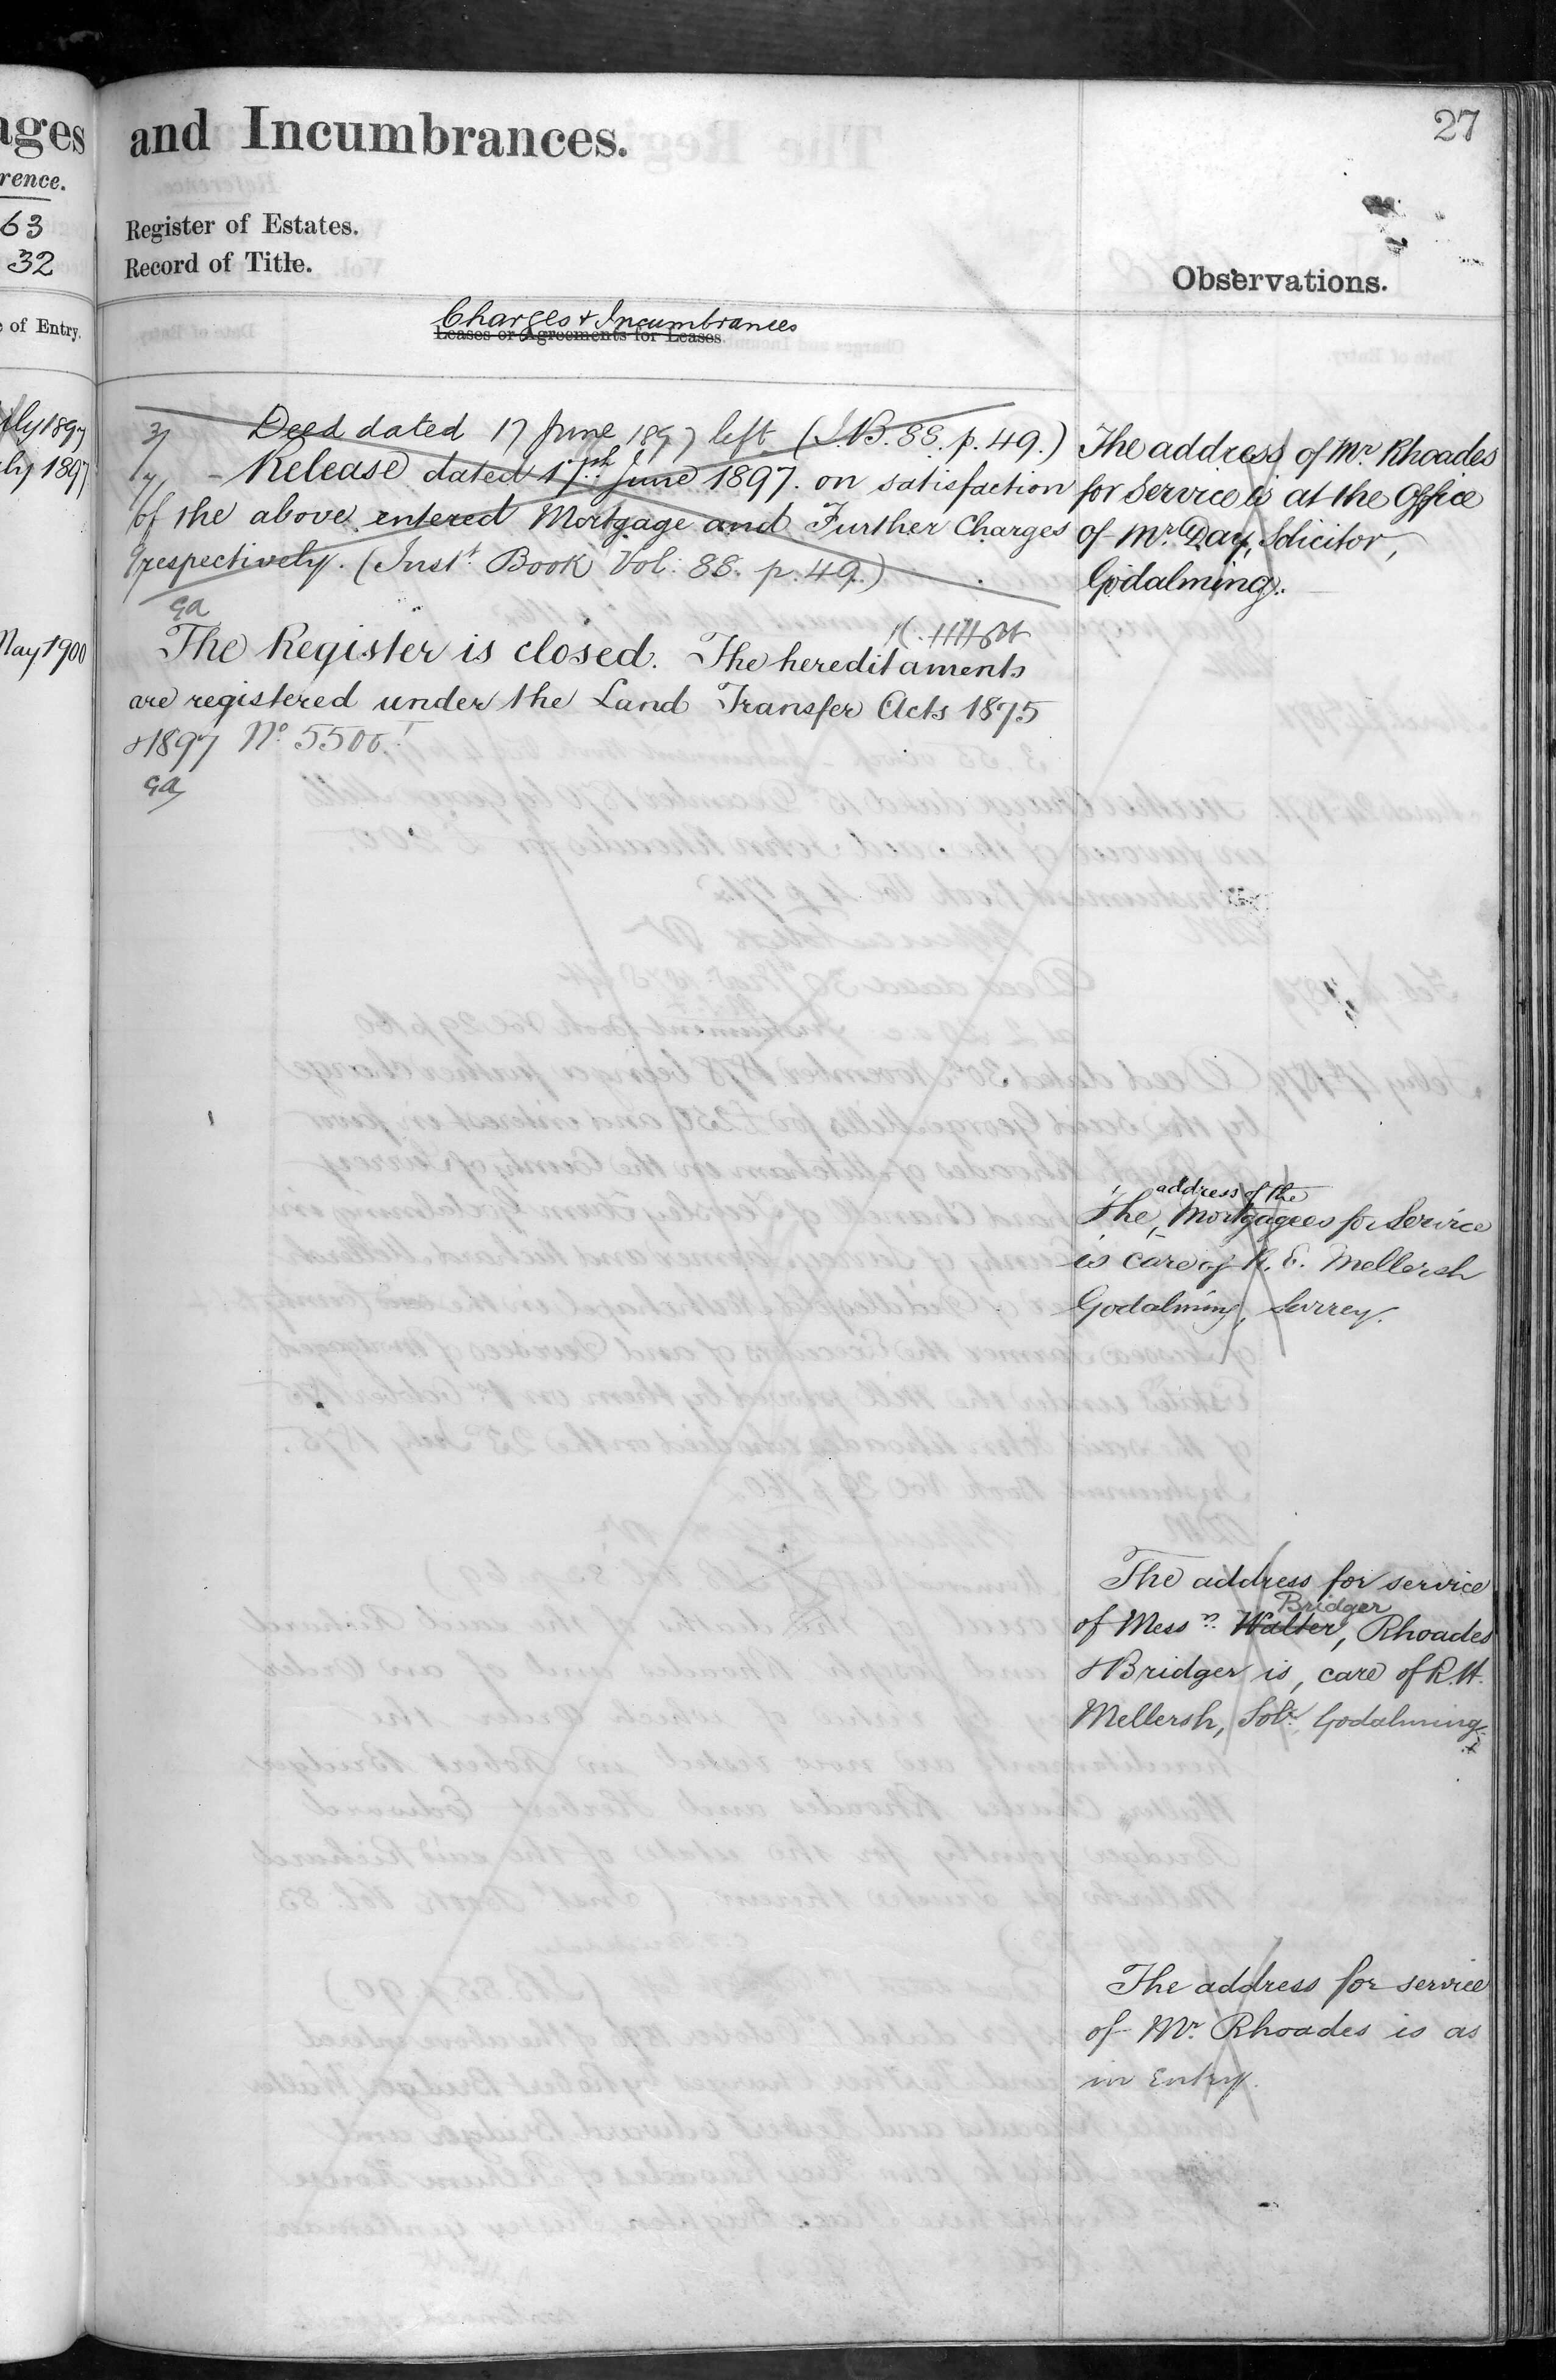 27
ages
and Incumbrances.
rence.
63
Register of Estates.
32
Record of Title.
Observations.
e of Entry.
Charges & Incumbrances
Leases or Agreements for Leases
uly 1897
3/ Deed dated 17 June 1897 left (I.B. 88. p. 49.)
uly 1897
Release dated 17th June 1897. on satisfaction
of the above entered Mortgage and Further Charges
respectively. (Inst. Book Vol. 88. p. 49.)
GA
May 1900
The Register is closed. The hereditaments
are registered under the Land Transfer Acts 1875
& 1897 No 5500.
GA
The address of Mr. Rhoades
for Service is at the Office
of Mr. Day, Solicitor,
Godalming.
address of the
The, Mortgagees for Service
is care of R. E. Mellersh
Godalming, Surrey.
The address for service
Bridger
of Messrs. Walter, Rhoades
& Bridger is, care of R. H.
Mellersh, Solr. Godalming
The address for service
of Mr. Rhoades is as
in Entry.